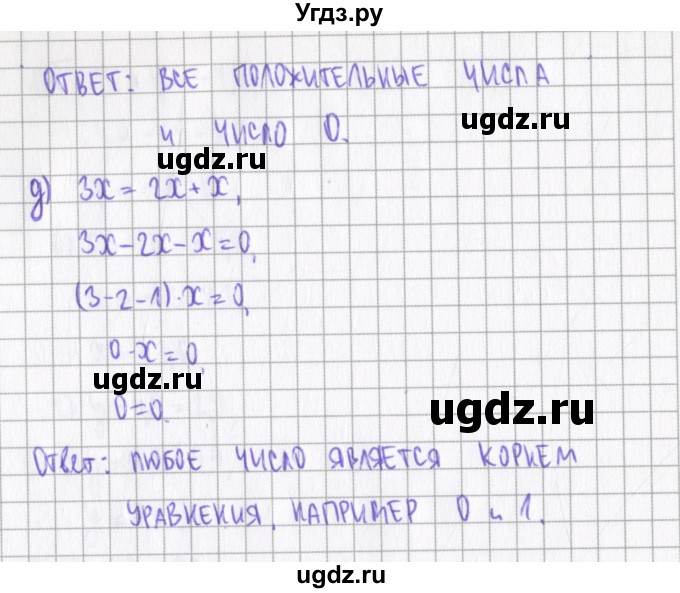 Угдз.ру
ОТВЕТ: ВСЕ ПОЛОЖИТЕЛЬНЫЕ ЧИСЛА
ugdz.ru
И ЧИСЛО 0.
ugdz.ru
д) 3x = 2x + x,
3x - 2x - x = 0,
(3 - 2 - 1) · x = 0,
0 · x = 0,
ugdz.ru
0 = 0.
ugdz.ru
Ответ: ЛЮБОЕ ЧИСЛО ЯВЛЯЕТСЯ КОРНЕМ
УРАВНЕНИЯ, НАПРИМЕР 0 и 1.
ugdz.ru